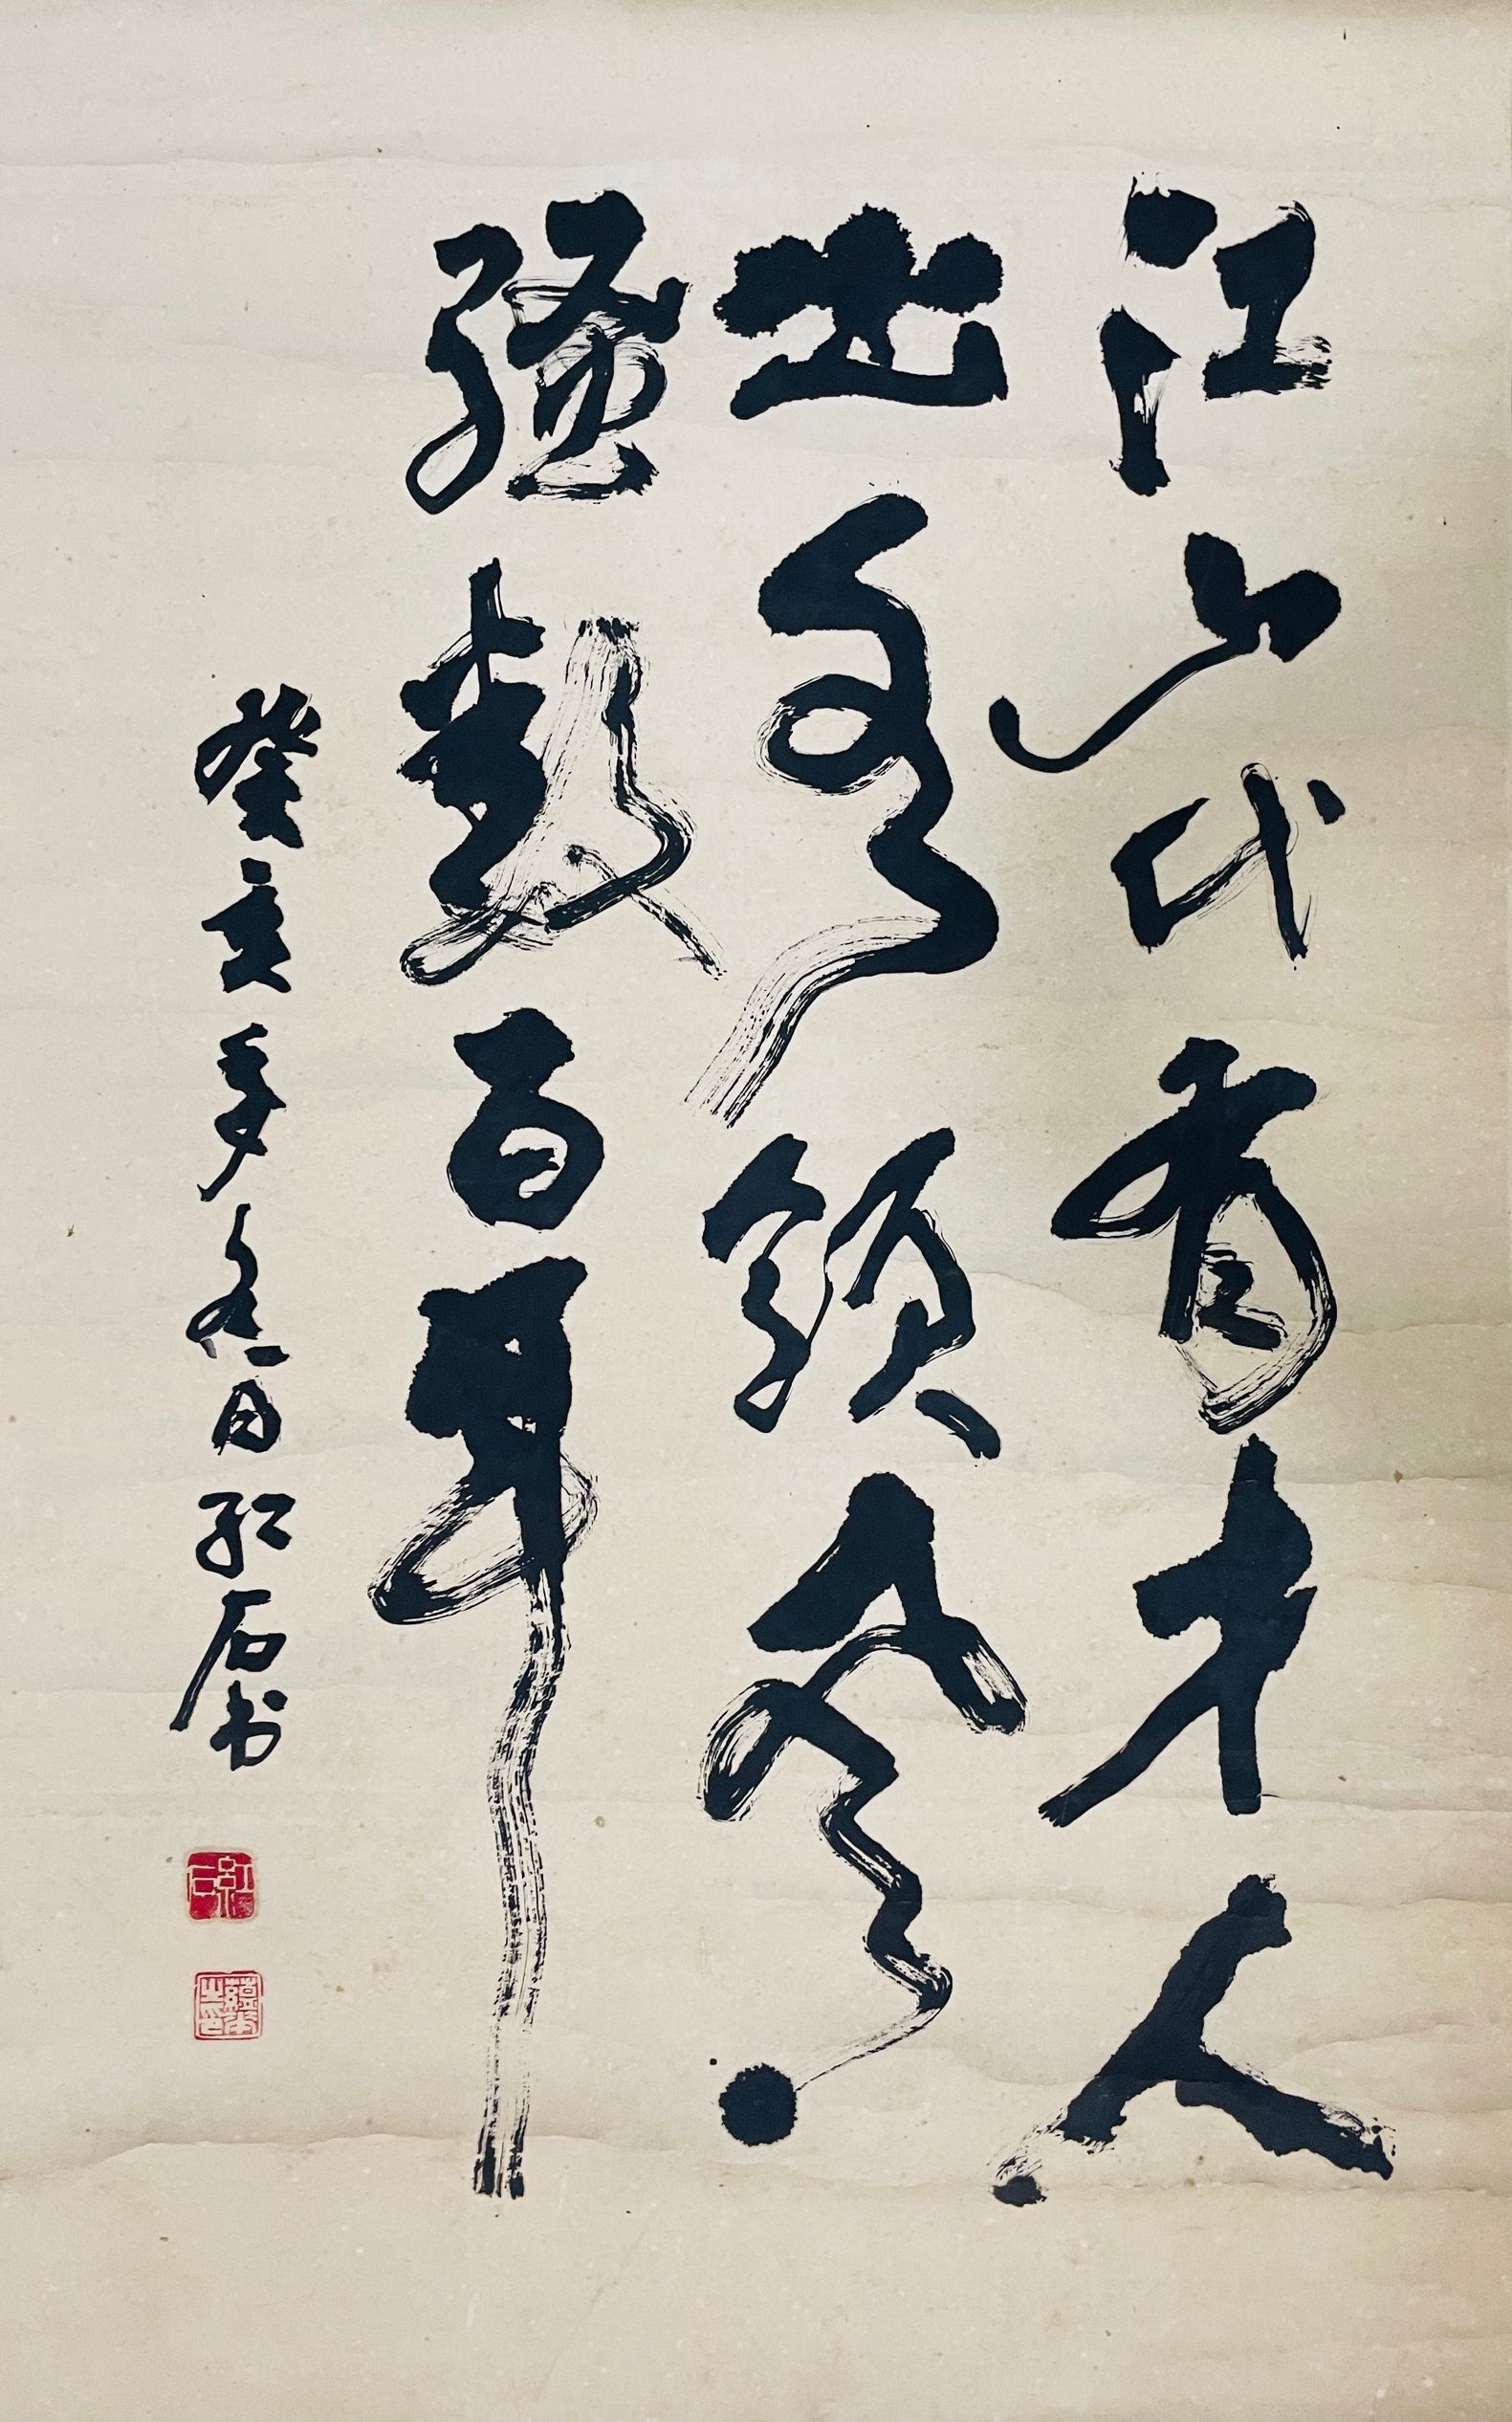 江山代有才人
出各领风
骚数百年
癸亥冬日红石书
红石